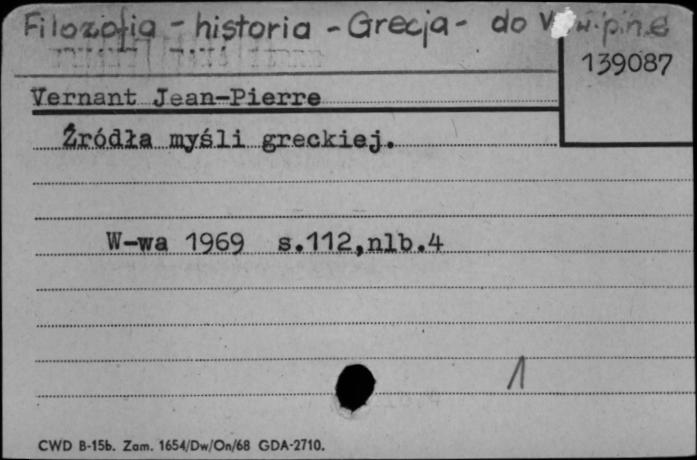 Filozofia - historia - Grecja - do V w. p.n.e
139087
Vernant Jean-Pierre
Źródła myśli greckiej.
W-wa 1969 s.112,nlb.4
1
CWD B-15b. Zam. 1654/Dw/On/68 GDA-2710.